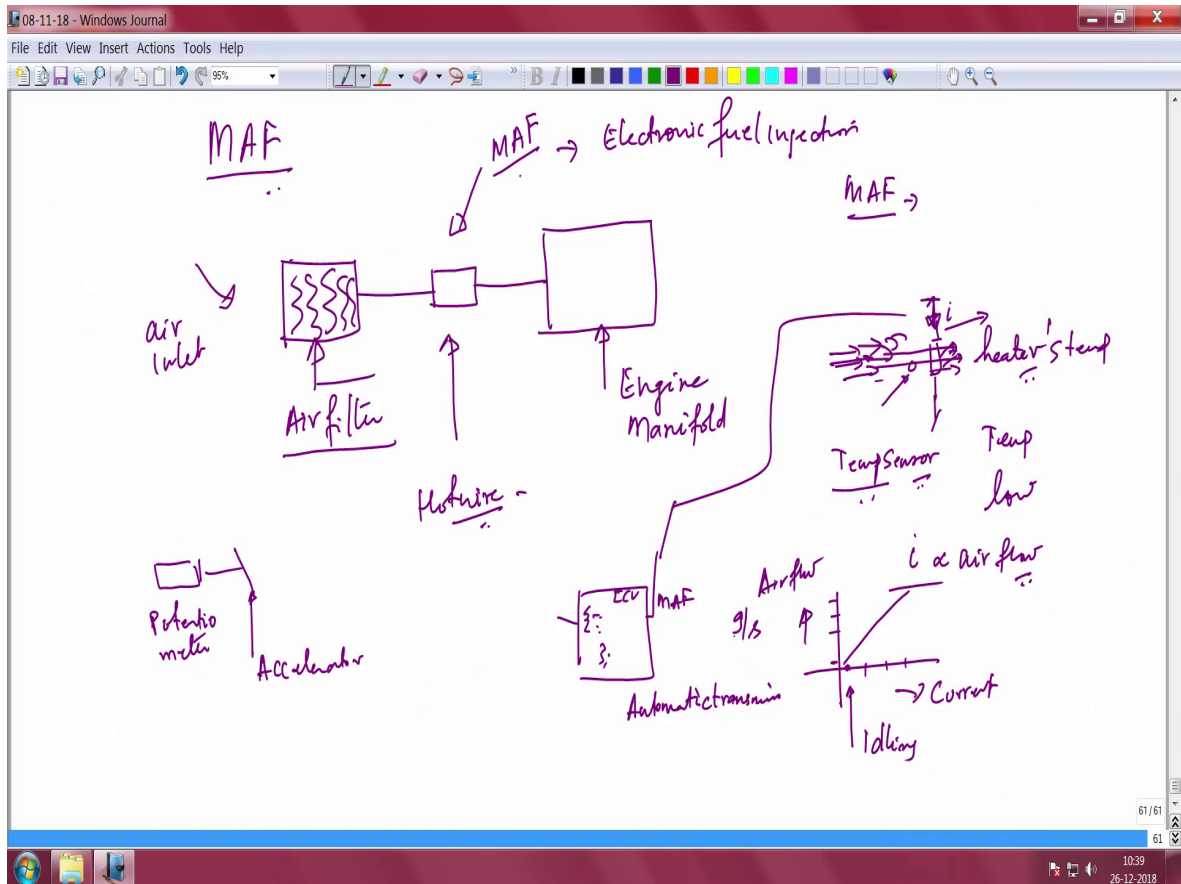 08-11-18 - Windows Journal
File Edit View Insert Actions Tools Help
95%
B I
MAF
MAF → Electronic fuel Injection
MAF →
air
inlet
Air filter
Hotwire -
Engine
Manifold
i
heater's temp
Temp Sensor
Temp
low
i ∝ air flow
Potentio
meter
Accelerator
ECU
MAF
Automatic transmin
Air flow
g/s
→ Current
Idling
61/61
61
10:39
26-12-2018